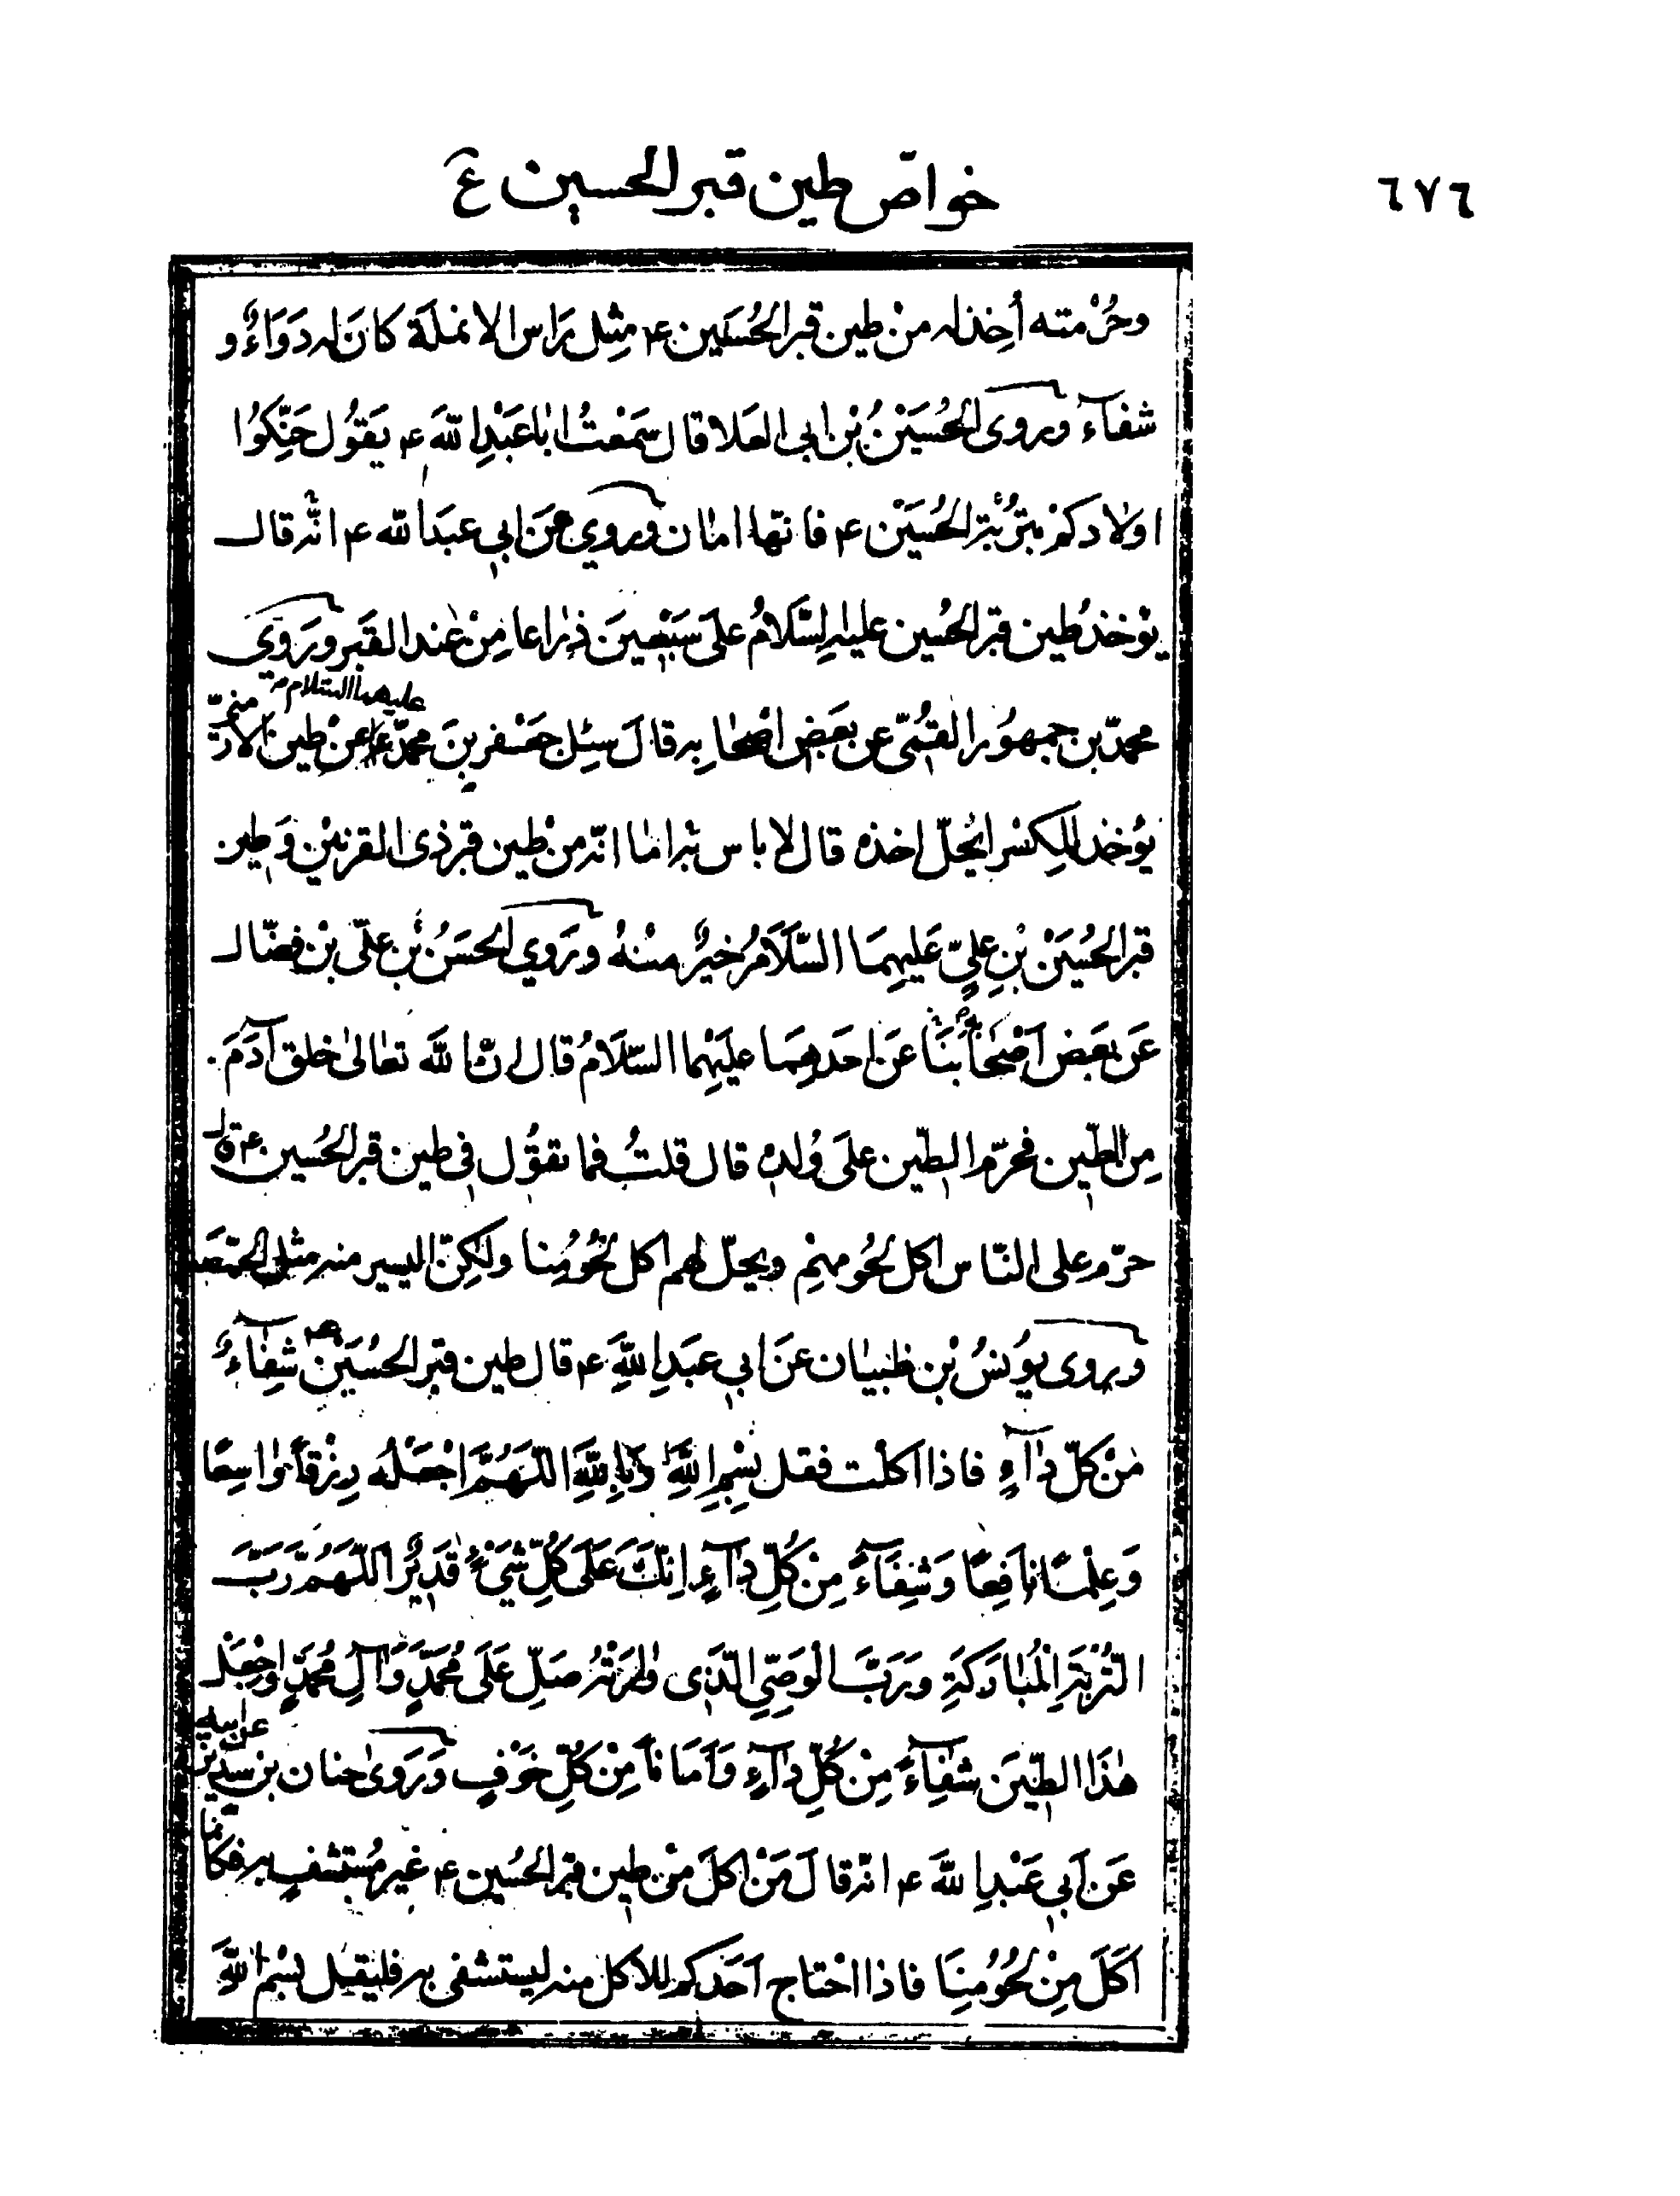 ٦٧٦
خواصّ طين قبر الحسين ع
وحُرْمته أُخِذ له منْ طين قبر الحُسَين ع مِثِل رَاس الانملَة كانَ له دَوَاءٌ و
شفآء وروى الحُسَيْنُ بْن ابى العَلا قال سَمْعتُ ابا عَبْدِ اللهَ ع يَقُول حَنِّكوُا
اولادكمْ بتُرْبَة الحُسَيْن ع فانّها امان وروي عَن ابي عبَد الله ع انّه قال
يوْخذ طين قبر الحُسين عليهِ السَّلامُ علَى سَبْعينَ ذراعا مِنْ عند القَبر ورَوي
محمدّ بن جمهوُر القُمّى عن بعَض اصْحابِه قالَ سئِل جعَفر بنَ محمدّ عليهما السّلام عنْ طين الارمنىّ
يُوخذ للِكسْر ايحُلّ اخذه قال لا باس به اما انّه من طين قبر ذى القرنينْ وَطين
قبر الحُسيَنْ بْنِ عليٍّ عَليهِمَا السَّلَامُ خيرٌ منْهُ ورَوي الحسَنُ بْن علىّ بنْ فضّال
عَن بعَض اَصْحابنَا عَن احَدهِمَا عليَهْما السّلَامُ قال انّ اللهَ تعالىٰ خلق آدَمَ
مِن الطّين فحَرّم الطّين علَى وُلده قال قلتُ فما تقوُل فى طين قبر الحُسين ع قال
حرّم على النّاس اكل لحُومهِمْ ويحلّ لهم اكل لحُوُمِنا ولكِنّ اليسير منه مثل الحمّصة
وروى يوُنسُ بْن ظبيان عَن ابي عبَدِ اللهِ ع قال طين قبر الحُسَيْن شِفآءٌ
منْ كلّ دآءٍ فاذا اكلْت فقل بسْمِ اللهِ وَبِاللهِ اللّهَمَُّ اجْعَلْهُ رِزْقاً واسِعًا
وَعِلْمًا نافِعًا وَشِفَآءً مِنْ كُلِّ دآءٍ اِنَّكَ عَلَى كُلِّ شَيْءٍ قَدِيرٌ اَللّهَمَُّ رَبَّ
التُّرْبَةِ المُبارَكَةِ وَرَبَّ الوَصِّيِ الَّذى وارَتْهُ صَلِّ عَلَى مُحَمَّدٍ وَآلِ مُحَمَّدٍ واجْعَلْ
هٰذَا الطّينَ شفآءً مِنْ كُلِّ دآءٍ وَأمَاناً مِنْ كُلِّ خَوْفٍ وَرَوىٰ حنان بن سدير عن ابيه
عَن اَبي عَبْدِ اللهَ ع انّه قالَ مَنْ اكلَ منْ طين قبر الحُسين ع غير مُستشفٍ به فكانّما
اكَلَ مِنْ لحُوُمِنَا فاذا احْتاج احَدكم للاكل منه ليستشفى به فليقل بسْمِ اللهِ